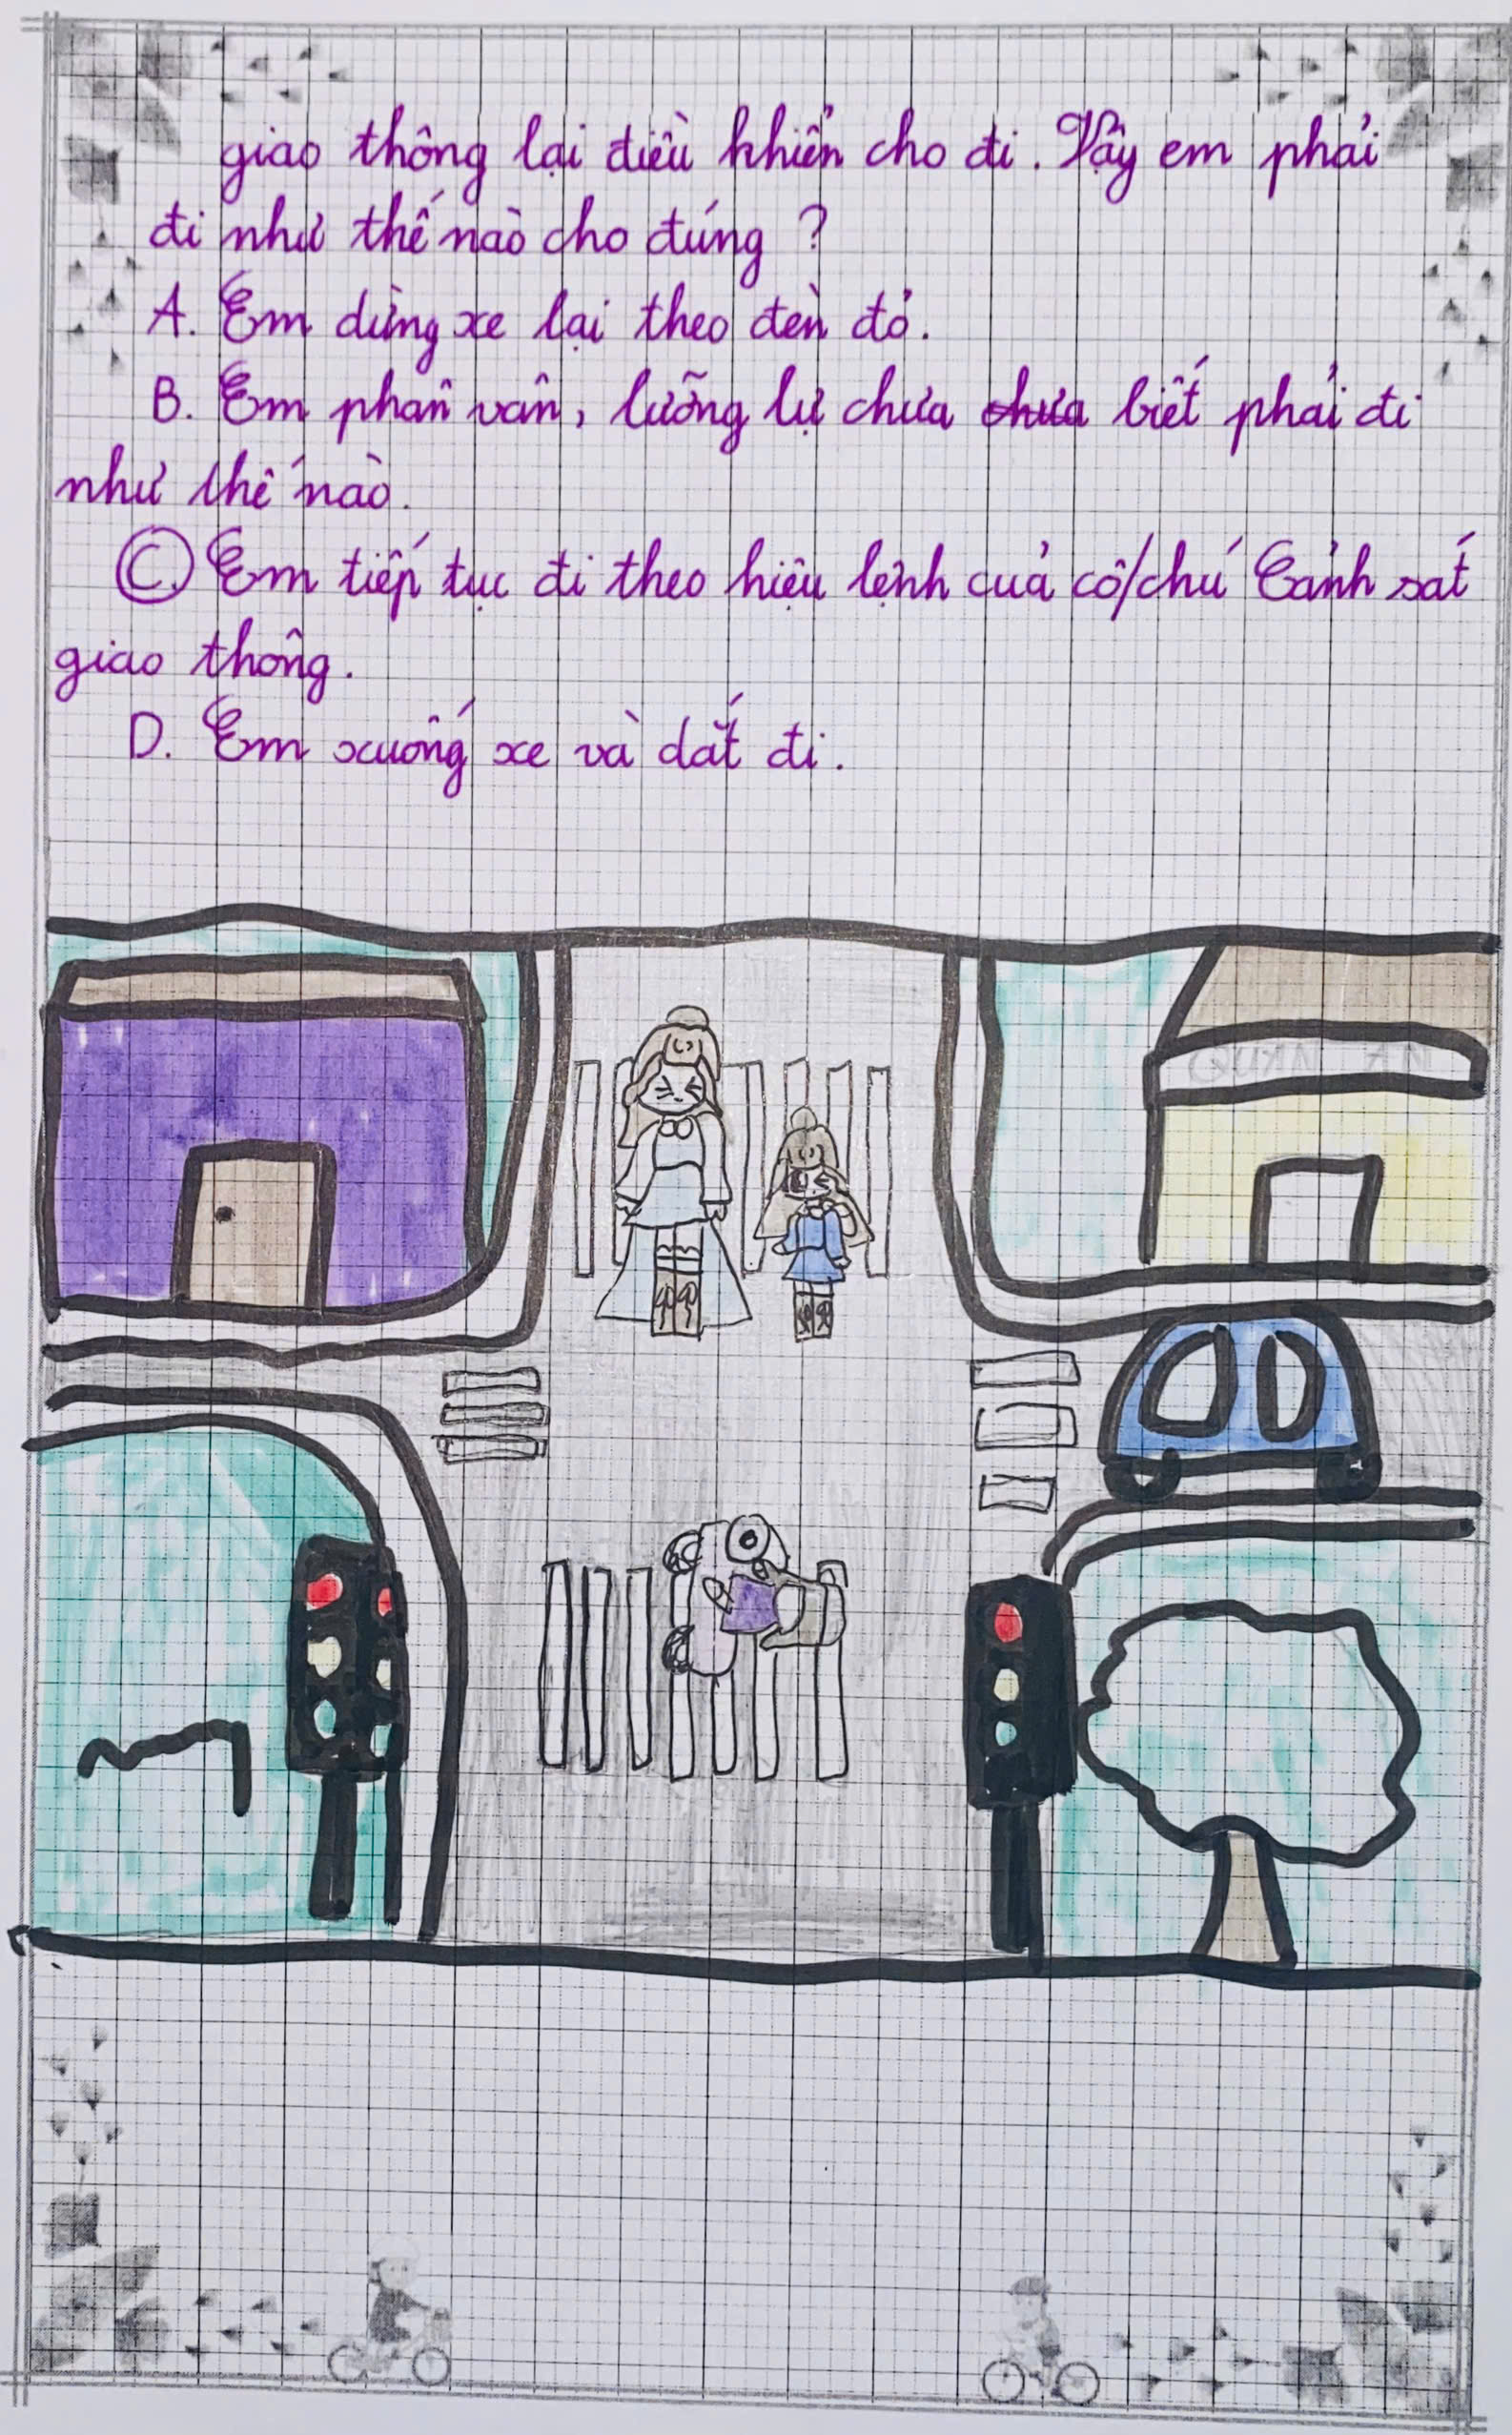 giao thông lại điều khiển cho đi. Vậy em phải
đi như thế nào cho đúng ?
A. Em dừng xe lại theo đèn đỏ.
B. Em phân vân, lưỡng lự chưa chưa biết phải đi
như thế nào.
C. Em tiếp tục đi theo hiệu lệnh của cô/chú Cảnh sát
giao thông.
D. Em xuống xe và dắt đi.